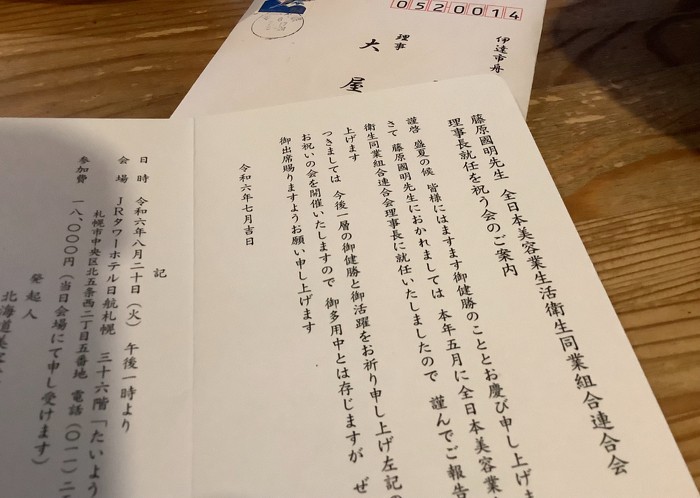 0520014
伊達市舟
理事
大屋
藤原國明先生 全日本美容業生活衛生同業組合連合会
理事長就任を祝う会のご案内
謹啓 盛夏の候 皆様にはますます御健勝のこととお慶び申し上げま
さて 藤原國明先生におかれましては 本年五月に全日本美容業
衛生同業組合連合会理事長に就任いたしましたので 謹んでご報告
上げます
つきましては 今後一層の御健勝と御活躍をお祈り申し上げ左記の
お祝いの会を開催いたしますので 御多用中とは存じますが ぜ
御出席賜りますようお願い申し上げます
令和六年七月吉日
記
日時 令和六年八月二十日（火） 午後一時より
会場 JRタワーホテル日航札幌 三十六階「たいよう
札幌市中央区北五条西二丁目五番地 電話（〇一一）二
参加費 一八、〇〇〇円（当日会場にて申し受けます）
発起人
北海道美容